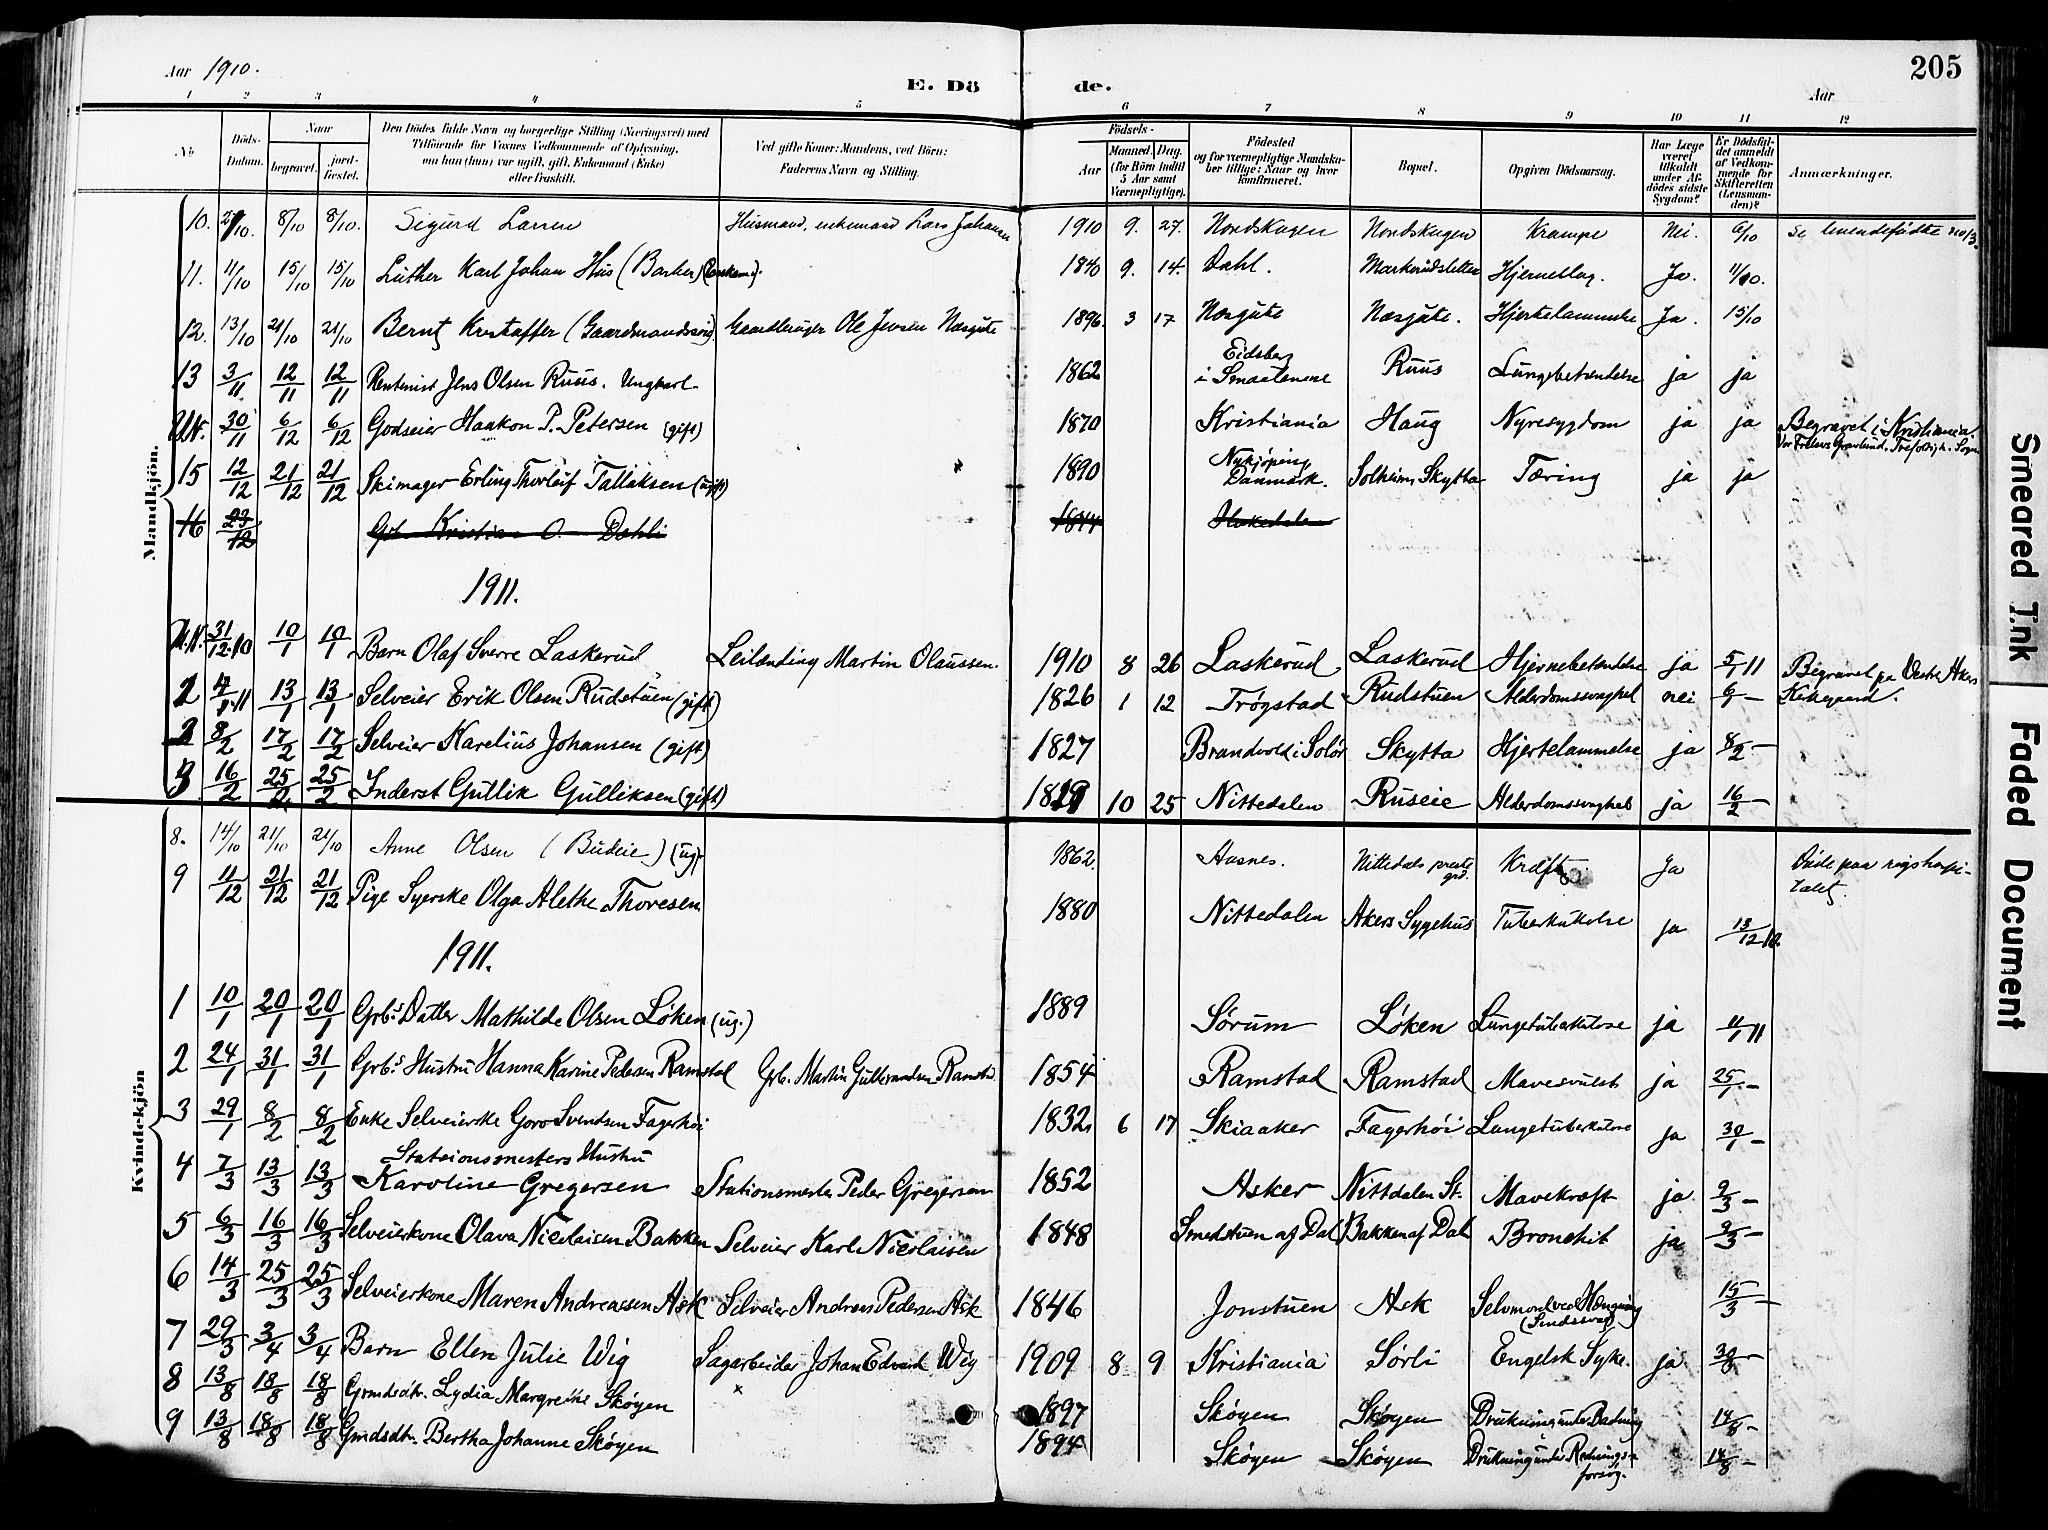 205
Aar 1910.
E. Dö de.
Aar
1 2 3 4 5 6 7 8 9 10 11 12
No.
Döds-Datum.
Naar
begravet.
jord-fæstet.
Den Dödes fulde Navn og borgerlige Stilling (Næringsvei) med
Tilföiende for Voxnes Vedkommende af Oplysning,
om han (hun) var ugift, gift, Enkemand (Enke)
eller fraskilt.
Ved gifte Koner: Mandens, ved Börn:
Faderens Navn og Stilling.
Födsels-
Aar
Maaned. Dag.
(for Börn indtil
5 Aar samt
Værnepligtige).
Födested
og for værnepligtige Mandska-
ber tillige: Naar og hvor
konfirmeret.
Bopæl.
Opgiven Dödsaarsag.
Har Læge
været
tilkaldt
under Af-
dödes sidste
Sygdom?
Er Dödsfal-
det anmeldt
af Vedkom-
mende for
Skifteretten
(Lensman-
den)?
Anmærkninger.
Mandkjön.
10. 8/10 8/10. Sigurd Larsen Husmand, enkemand Lars Johansen 1910 9. 27. Nordskogen Nordskogen Krampe Nei. 6/10 Se levendefødte no 13.
11. 11/10 15/10 15/10 Luther Karl Johan Hus (Barber) 1840 9. 14. Dahl. Markerudsletten Hjerneslag. Ja. 11/10.
12. 13/10 21/10 21/10 Bernt Kristoffer (Gaardmandssøn). Gaardbruger Ole Jensen Næsgate 1896. 3 17 Næsgate Næsgate. Hjertelammelse Ja. 15/10
13 3/11. 12/11 12/11 Rentenist Jens Olsen Ruus. Ungkarl. 1862 Eidsberg i Smaalenene Ruus Lungebetændelse ja ja
U.N. 30/11 6/12 6/12 Godseier Haakon P. Petersen (gift) 1870 Kristiania Haug Nyresygdom ja ja Begravet i Kristiania
Vor Frelsers Gravlund. Trefoldigh. Sogn
15 12/12 21/12 21/12 Skimager Erling Thorleif Tallaksen (ugift) 1890 Nykjöping Danmark. Solheim Skytta Tæring ja ja
16 23/12 Grb. Kristian O. Dahli 1844 Hakedalen
1911.
U.N. 31/12.10 10/1 10/1 Barn Olaf Sverre Laskerud Leilænding Martin Olaussen. 1910 8 26 Laskerud Laskerud Hjernebetændelse ja 5/1 11 Begravet pa Vestre Akers
Kirkegaard.
2 4/1.11 13/1 13/1 Selveier Erik Olsen Rudstuen (gift) 1826 1 12 Trøgstad Rudstuen Alderdomssvaghet nei 6/1 —
2 8/2 17/2 17/2 Selveier Karelius Johansen (gift) 1827 Brandvold i Solør Skytta Hjertelammelse ja 8/2 —
3 16/2 25/2 25/2 Inderst Gullik Gulliksen (gift) 10 25 Nittedalen Ruseie Alderdomssvaghet ja 16/2 —
Kvindekjön
8. 14/10 21/10 21/10 Anne Olsen (Budeie) (ug). 1862. Aasnes. Nittedals preste grd. Kræft Ja Døde paa rigshospi-
talet.
9 11/12 21/12 21/12 Pige Syerske Olga Alethe Thoresen 1880 Nittedalen Akers Sygehus Tuberkulose ja 13/12 10.
1911.
1 10/1 20/1 20/1 Grbs. Datter Mathilde Olsen Løken (ug.) 1889 Sørum Løken Lungetuberkulose ja 11/1 11
2 24/1 31/1 31/1 Grbs. Hustru Hanna Karine Pedersen Ramstad Grb. Martin Gulbrandsen Ramstad 1854 Ramstad Ramstad Mavesvulst ja 25/1 —
3 29/1 8/2 8/2 Enke Selveierske Goro Svendsen Fagerhøi 1832 6 17 Skiaaker Fagerhöi Lungetuberkulose ja 30/1 —
Stationsmesters Hustru
4 7/3 13/3 13/3 Karoline Gregersen Stationsmester Peder Gregersen 1852 Asker Nittdalen St. Mavekræft ja 9/3 —
5 6/3 16/3 16/3 Selveierkone Olava Nicolaisen Bakken Selveier Karl Nicolaisen 1848 Smedstuen af Dal Bakken af Dal Bronchit ja 9/3 —
6 14/3 25/3 25/3 Selveierkone Maren Andreassen Ask Selveier Andreas Pedersen Ask 1846 Jonstuen Ask Selvmord ved Hængning
(Sindssvag) 15/3 —
7 29/3 3/4 3/4 Barn Ellen Julie Wig Sagarbeider Johan Edvard Wig 1909 8 9 Kristiania Sørli Engelsk Syke. ja 30/8 —
8 13/8 18/8 18/8 Grmdsdtr. Lydia Margrethe Skøyen 1897 Skøyen Skøyen Drukning under Badning 14/8 —
9 13/8 18/8 18/8 Grmdsdtr. Bertha Johanne Skøyen 1894 Skøyen Skøyen Drukning under Rednings-
forsøg. 14/8 —
Smeared Ink
Faded Document